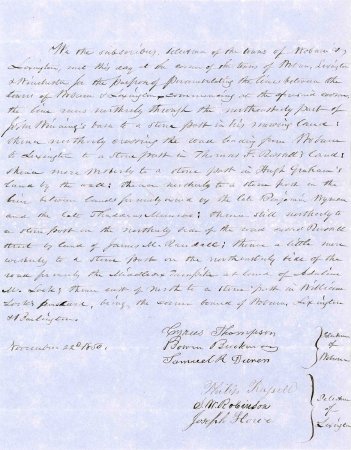 We the subscribers, Selectmen of the towns of Woburn &
Lexington, met this day at the corner of the towns of Woburn, Lexington
& Winchester for the purpose of perambulating the line between the
towns of Woburn & Lexington. Commencing at the aforesaid corner,
the line runs northerly through the northeasterly part of
John Munnig's barn to a stone post in his mowing land;
thence northerly crossing the road leading from Woburn
to Lexington to a stone post in Thomas F. Land;
thence more westerly to a stone post in Hugh Graham's
land by the wall; thence northerly to a stone post in the
line between lands formerly owned by the late Benjamin Wyman
and the late Thaddeus Munroe; thence still northerly to
a stone post on the northerly side of the road Russell
street by land of James M. Randall; thence a little more
westerly to a stone post on the northeasterly side of the
road formerly the Middlesex Turnpike at land of Adaline
M. Locke; thence east of North to a stone post in William
Locke's pasture, being, the corner bound of Woburn, Lexington
& Burlington.
November 22d 1850.
Cyrus Thompson
Bowen Buckman
Samuel R. Duren
Selectmen
of
Woburn
Philip Russell
S. W. Robinson
Joseph Howe
Selectmen
of
Lexington